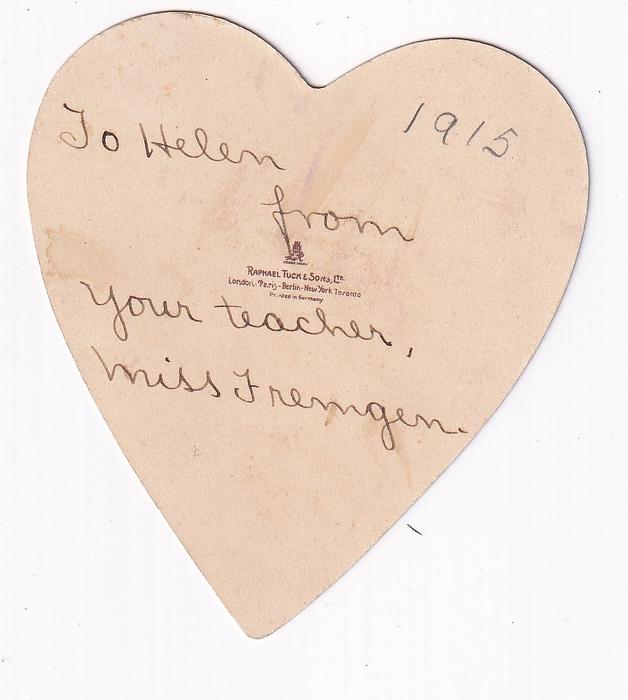 1915
To Helen
from
RAPHAEL TUCK & SONS, LTD.
London - Paris - Berlin - New York Toronto
Printed in Germany
your teacher,
Miss Fremgen.